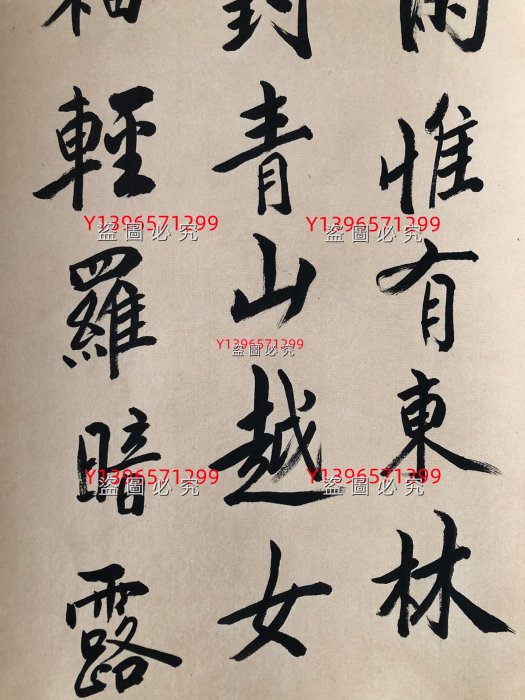 惟有東林
青山越女
輕羅暗露
Y1396571299
盜圖必究
Y1396571299
盜圖必究
Y1396571299
盜圖必究
Y1396571299
盜圖必究
Y1396571299
盜圖必究